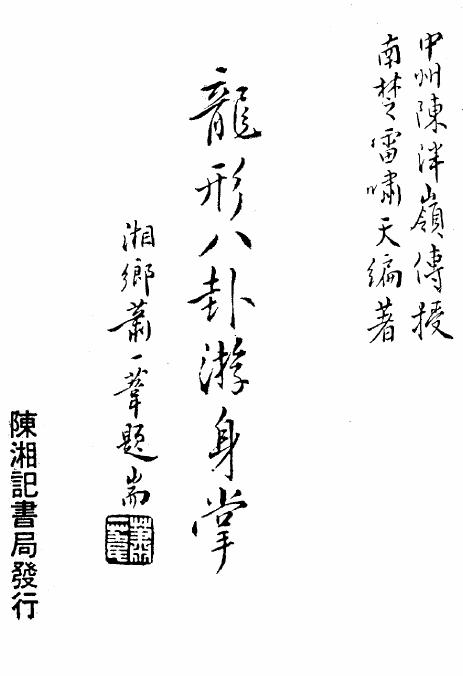 中州陳泮嶺傳授
南楚雷嘯天編著
龍形八卦游身掌
湘鄉蕭一葦題耑
蕭一葦
陳湘記書局發行